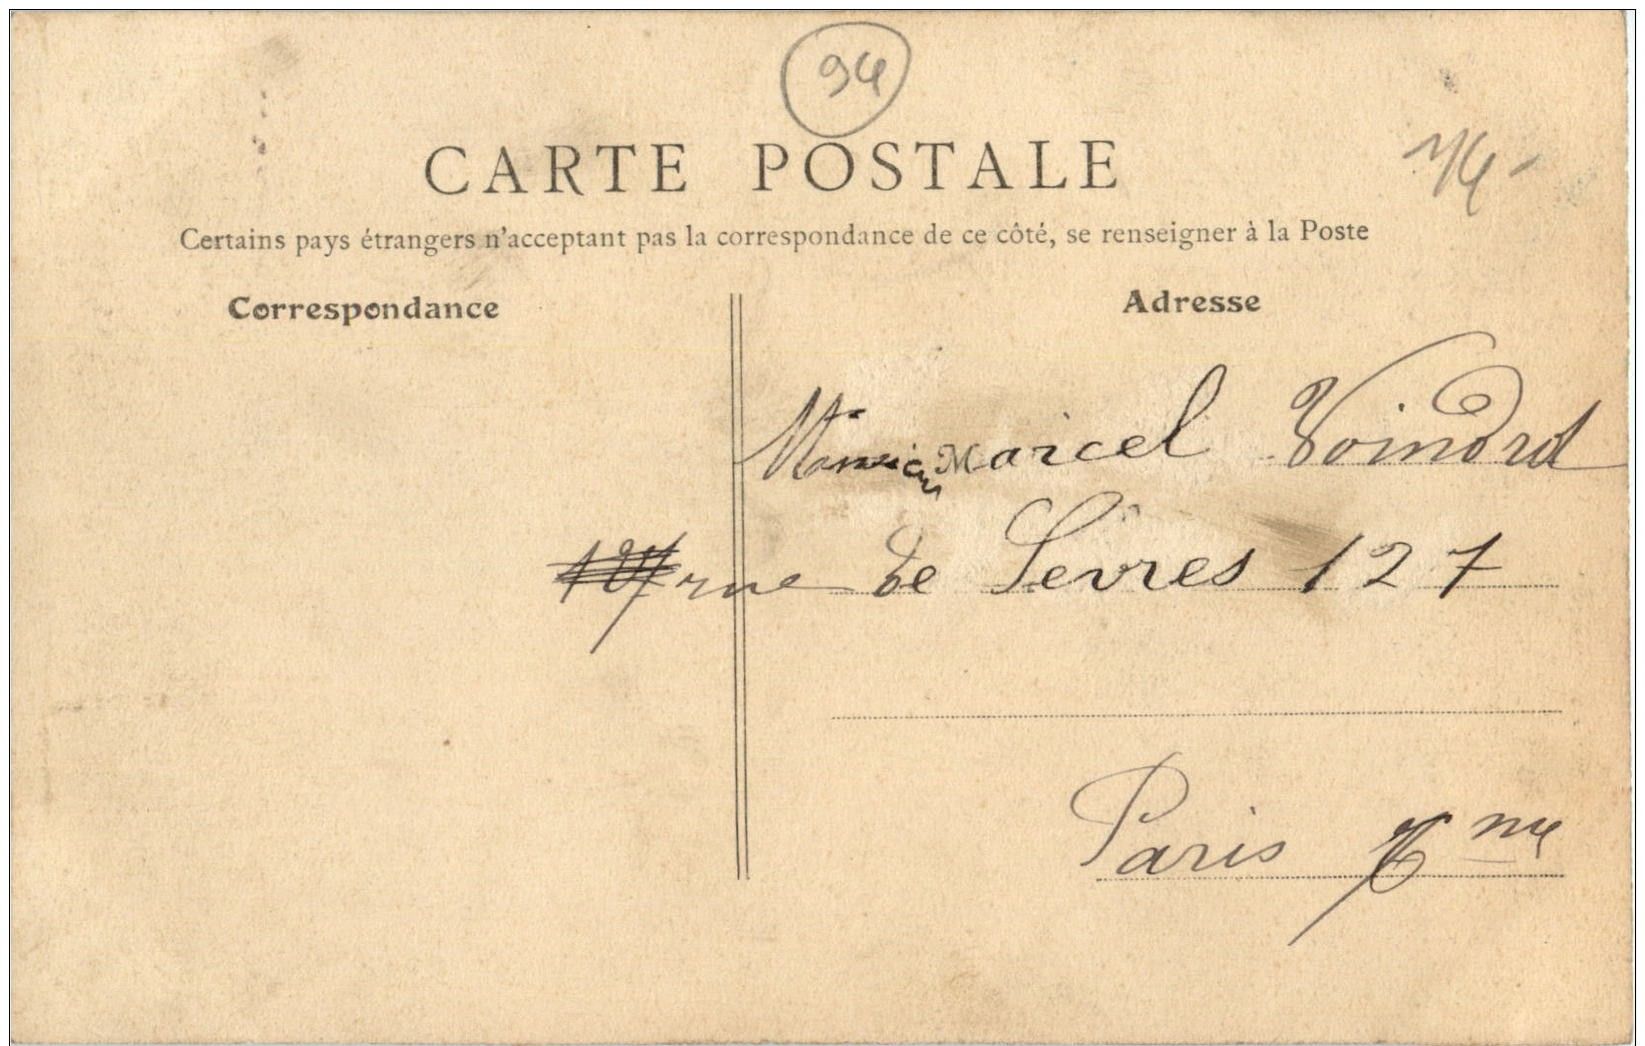 94
CARTE POSTALE
Certains pays étrangers n'acceptant pas la correspondance de ce côté, se renseigner à la Poste
Correspondance
Adresse
Monsieur Marcel Voindrot
rue de Sèvres 127
Paris 6me